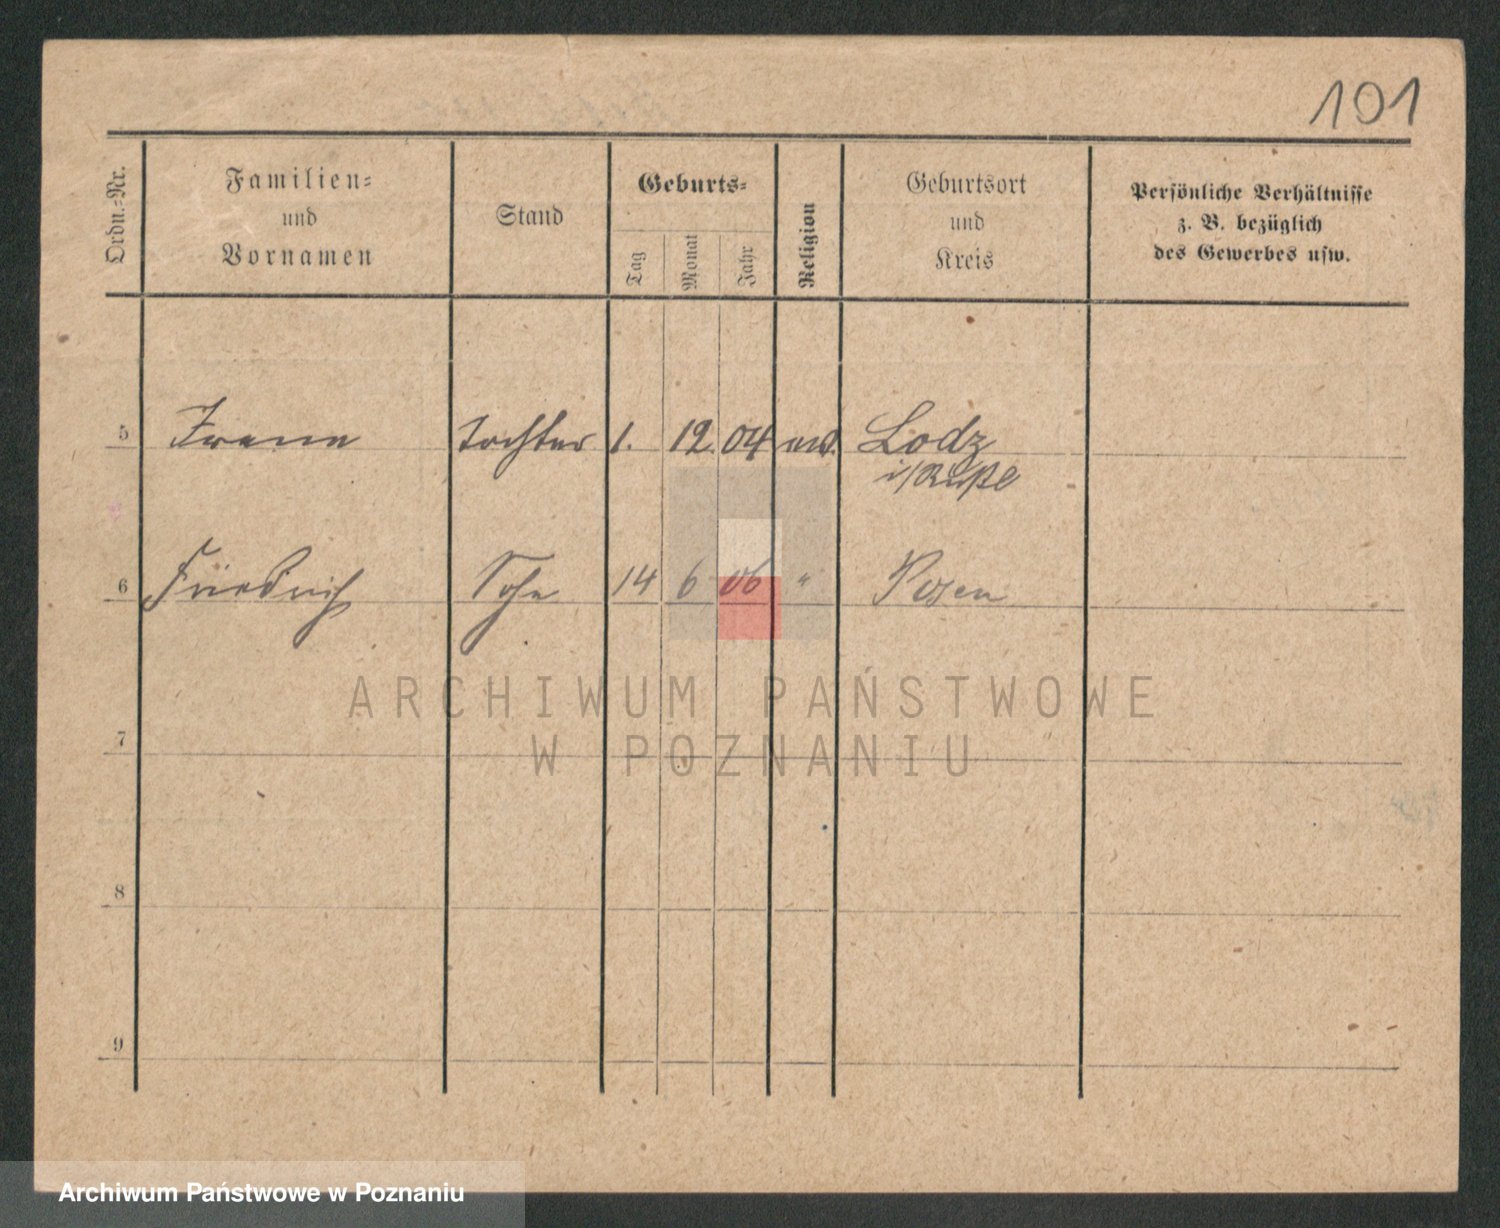 101
Ordn.-Nr.
Familien-
und
Vornamen
Stand
Geburts-
Tag
Monat
Jahr
Religion
Geburtsort
und
Kreis
Persönliche Verhältnisse
z. B. bezüglich
des Gewerbes usw.
5 Irene Tochter 1. 12. 04 Lodz
i/Rußl
6 Friedrich Sohn 14 6 06 " Posen
ARCHIWUM PAŃSTWOWE
W POZNANIU
7
8
9
Archiwum Państwowe w Poznaniu